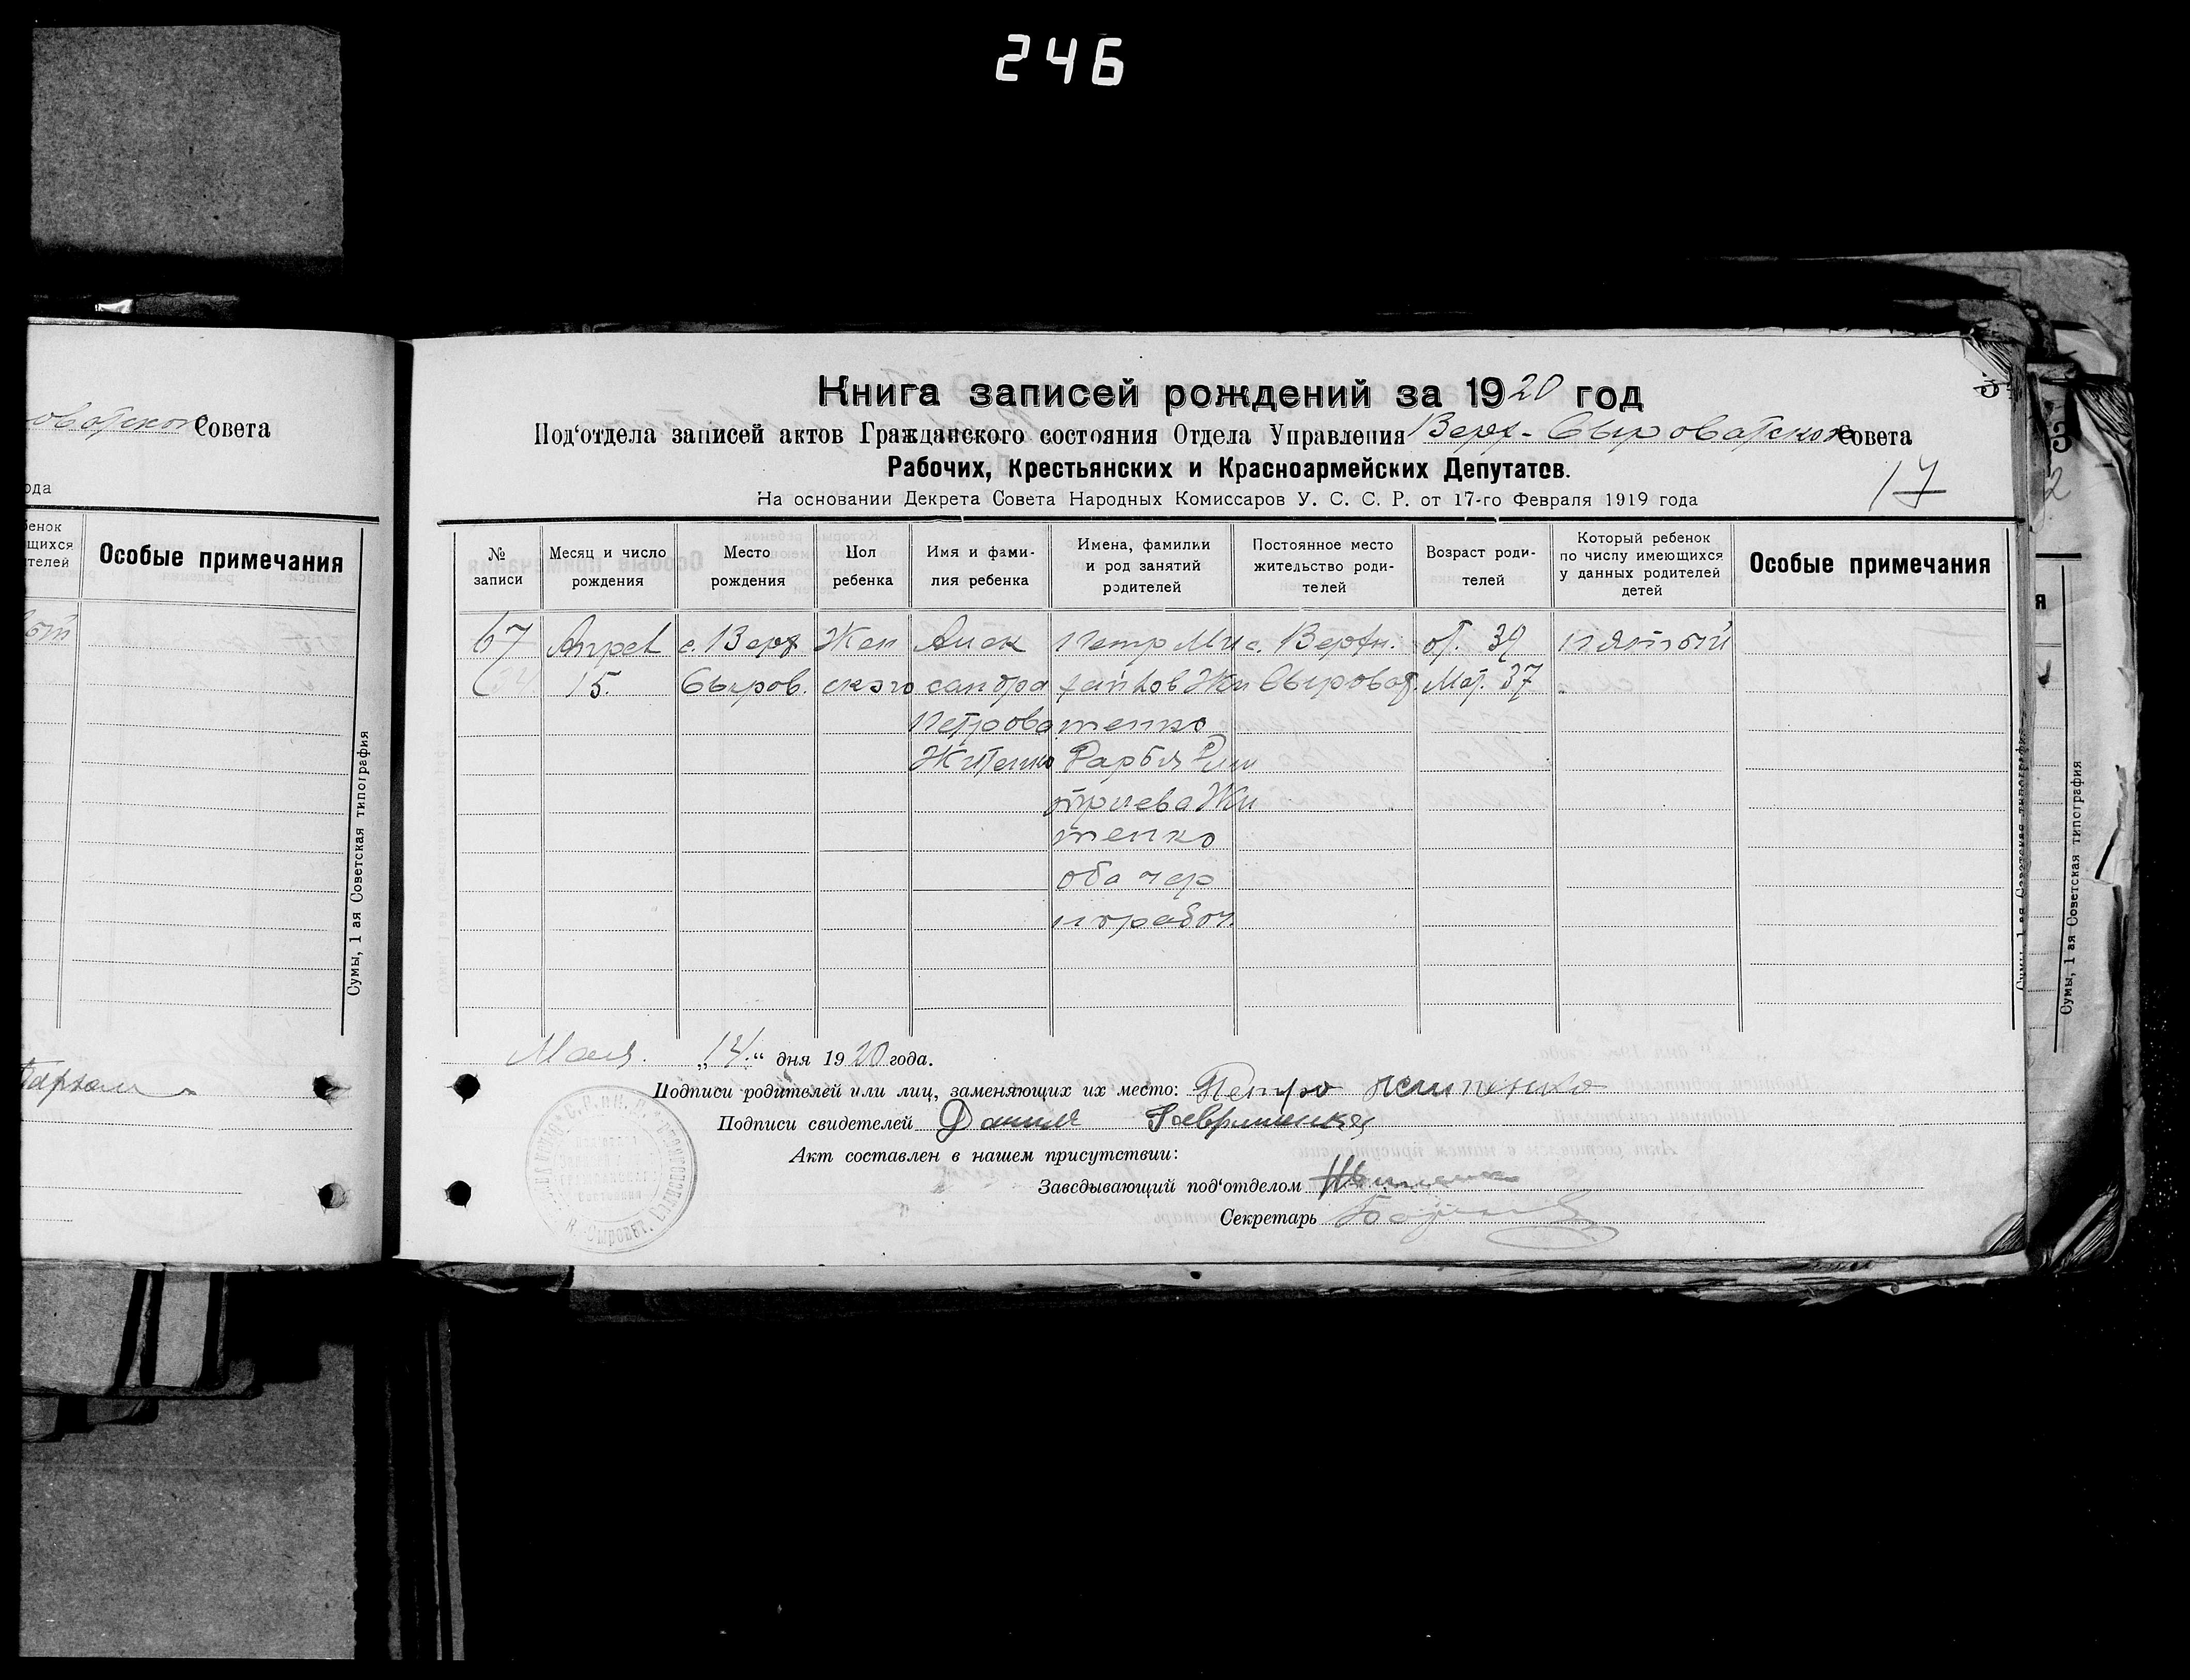 246
оватской Совета
ода
бенок
щихся
ителей
Особые примечания
Сумы, 1 ая Советская типография
Книга записей рождений за 1920 год
Под‘отдела записей актов Гражданского состояния Отдела Управления Верх-Сыроватской Совета
Рабочих, Крестьянских и Красноармейских Депутатов.
17
На основании Декрета Совета Народных Комиссаров У. С. С. Р. от 17-го Февраля 1919 года
№ записи
Месяц и число рождения
Место рождения
Пол ребенка
Имя и фами-
лия ребенка
Имена, фамилии
и род занятий
родителей
Постоянное место
жительство роди-
телей
Возраст роди-
телей
Который ребенок
по числу имеющихся
у данных родителей
детей
Особые примечания
67 Апрел с. Верх Жен Алек Петр Ми с. Верхн. от. 39 пятый
15. Сыров. ского сандра хайлов Жи Сыроват. Мат. 37
Петрова тенко
Житенко Дарья Дми
триева Жи
тенко
оба чер
норабоч.
Мая „14“ дня 1920 года.
Подписи родителей или лиц, заменяющих их место: Петро Житенко
Подписи свидетелей Данил
Акт составлен в нашем присутствии:
Заведывающий под‘отделом
Секретарь
Сумы, 1 ая Советская типография
Сумы, 1 ая Советская типография